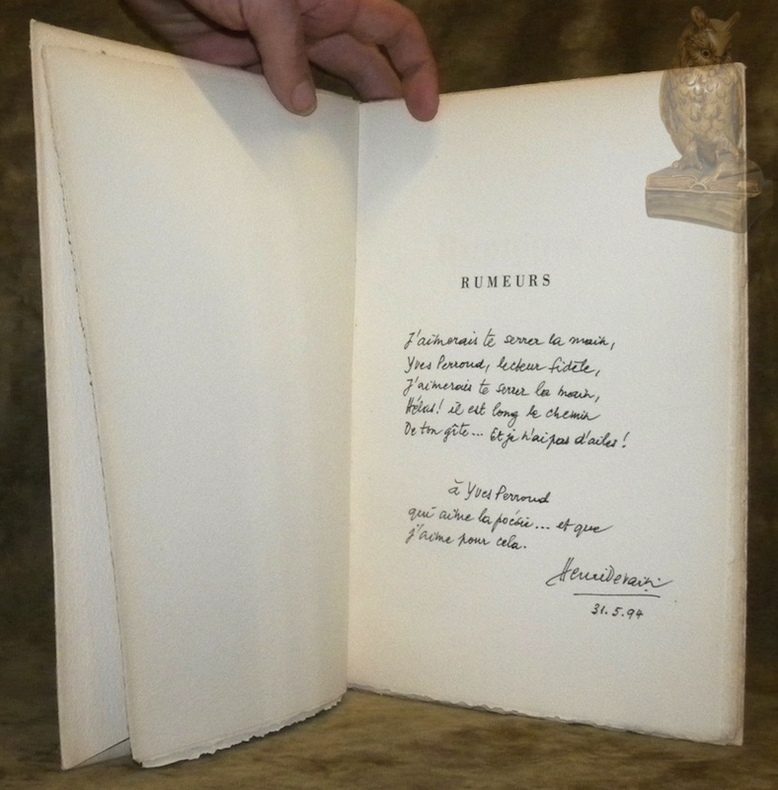 RUMEURS
J'aimerais te serrer la main,
Yves Perroud, lecteur fidèle,
J'aimerais te serrer la main,
Hélas! il est long le chemin
De ton gîte... Et je n'ai pas d'ailes!
à Yves Perroud
qui aime la poésie... et que
j'aime pour cela.
Henri Devain
31.5.94